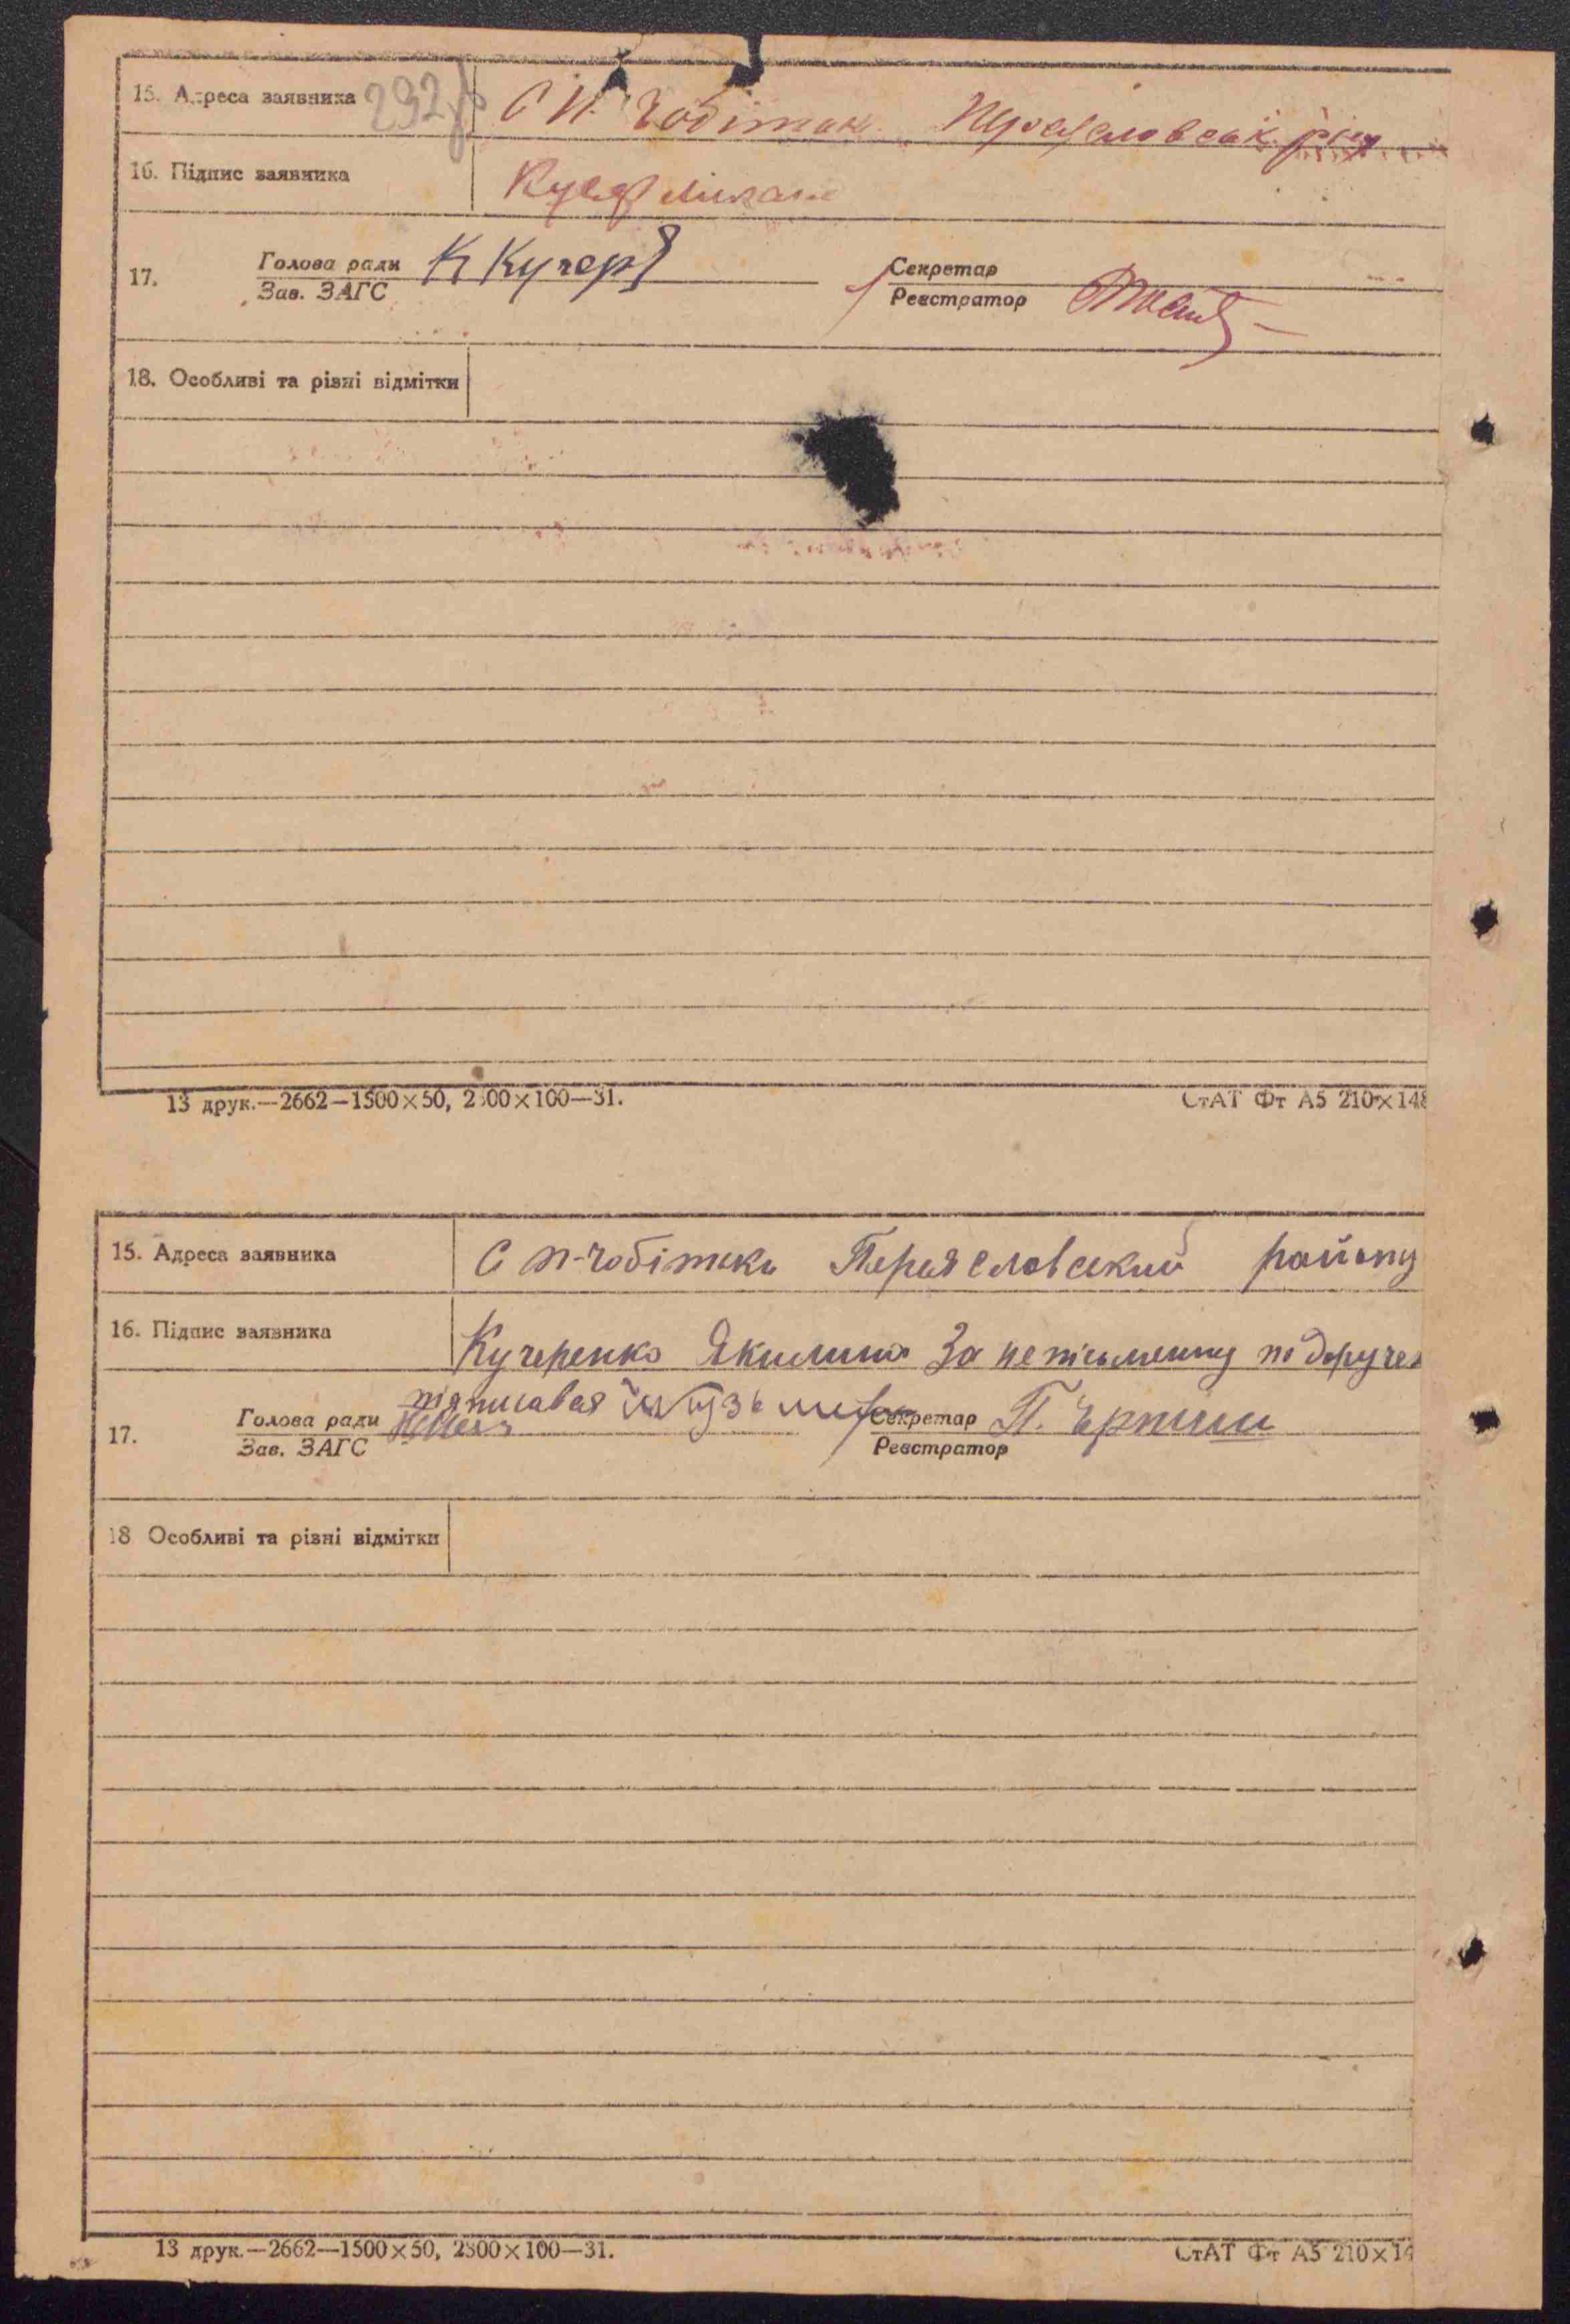 15. Адреса заявника 292 С П. Чобітьки
16. Підпис заявника
17. Голова ради К Кучер Секретар
Зав. ЗАГС Реєстратор
18. Особливі та різні відмітки
13 друк.—2662—1500×50, 2300×100—31. СтАТ Фт А5 210×148
15. Адреса заявника С п-чобітьки Переяславский району
16. Підпис заявника Кучеренко Якилина За неписьменну по доручен
підписався
17. Голова ради Секретар П.
Зав. ЗАГС Реєстратор
18 Особливі та різні відмітки
13 друк.—2662—1500×50, 2300×100—31. СтАТ Фт А5 210×14